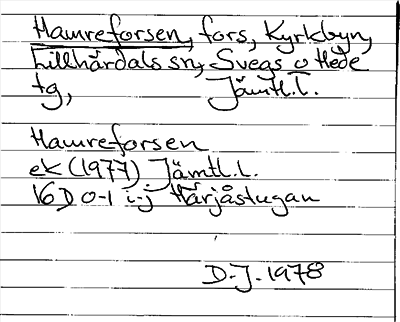 Hamreforsen, fors, Kyrkbyn,
Lillhärdals sn, Svegs o Hede
tg, Jämtl.l.
Hamreforsen
ek (1977) Jämtl.l.
16D 0-1 i-j Härjåstugan
D.J. 1978